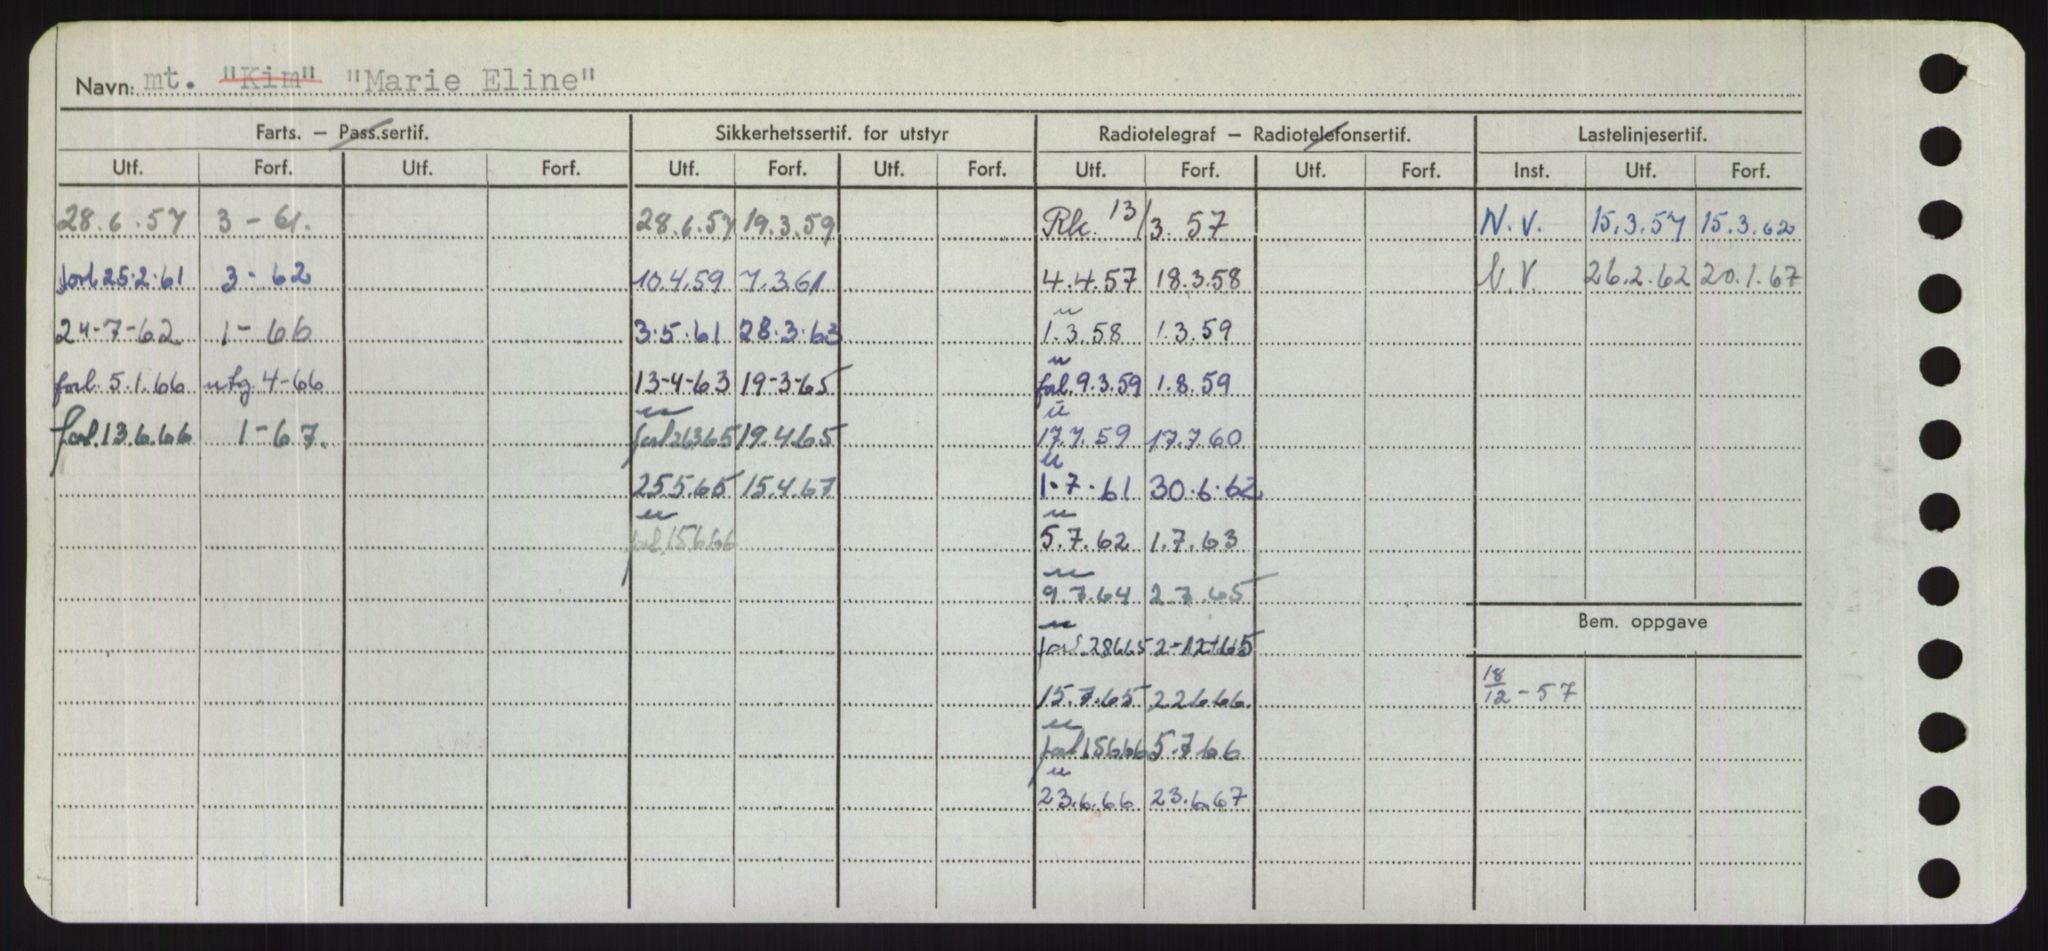 Navn: mt. "Kim" "Marie Eline"
Farts. — Pass.sertif. Sikkerhetssertif. for utstyr Radiotelegraf — Radiotelefonsertif. Lastelinjesertif.
Utf. Forf. Utf. Forf. Utf. Forf. Utf. Forf. Utf. Forf. Utf. Forf. Inst. Utf. Forf.
28.6.57 3-61. 28.6.57 19.3.59 Rk. 13/3.57 N.V. 15.3.57 15.3.62
forl. 25.2.61 3-62 10.4.59 7.3.61 4.4.57 18.3.58 N.V. 26.2.62 20.1.67
24-7-62 1-66 3.5.61 28.3.63 1.3.58 1.3.59
forl. 5.1.66 utg. 4-66 13-4-63 19-3-65 forl. 9.3.59 1.8.59
forl. 13.6.66 1-67. forl. 26365 19.4.65 17.7.59 17.7.60
25.5.65 15.4.67 1.7.61 30.6.62
forl. 15.6.66 5.7.62 1.7.63
9.7.64 2.7.65
Bem. oppgave
forl. 28665 2-12-65
15.7.65 22.6.66 18/12-57
forl. 15.6.66 5.7.66
23.6.66 23.6.67